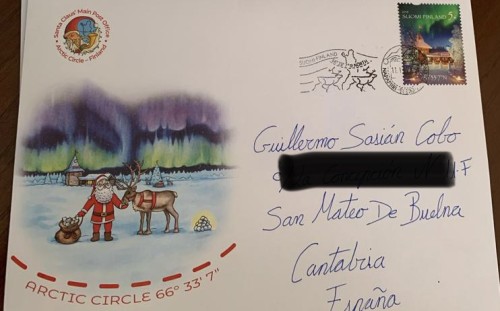 Santa Claus' Main Post Office
Arctic Circle – Finland
SUOMI FINLAND
SUOMI FINLAND
Guillermo Sasián Cobo
San Mateo De Buelna
Cantabria
España
ARCTIC CIRCLE 66° 33' 7"